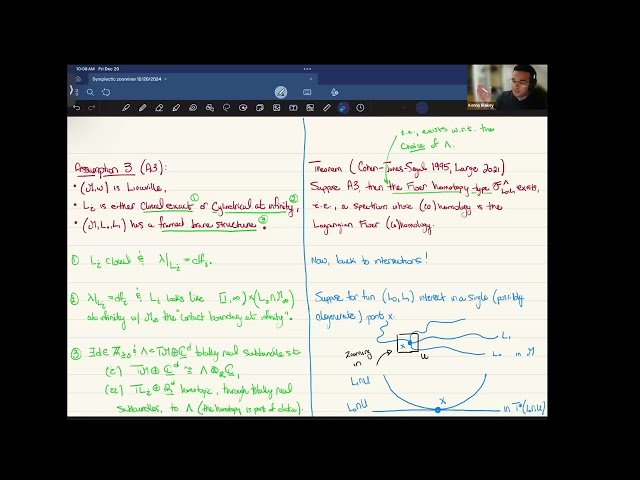 10:08 AM Fri Dec 20
Symplectic zoominar 12/20/2024
Kenny Blakey
Assumption 3 (A3):
• (M,ω) is Liouville,
• Lᵢ is either closed exact ① or cylindrical at infinity, ②
• (M, L₀, L₁) has a framed brane structure. ③
① Lᵢ closed & λ|Lᵢ = dfᵢ.
② λ|Lᵢ = dfᵢ & Lᵢ looks like [1,∞) × (Lᵢ∩M∞)
at infinity w/ M∞ the "contact boundary at infinity".
③ ∃ d ∈ ℤ≥0 & Λ ⊂ TM⊕ℂᵈ totally real subbundle s.t.
(i) TM⊕ℂᵈ ≅ Λ⊗ℝℂ,
(ii) TLᵢ⊕ℝᵈ homotopic, through totally real
subbundles, to Λ (the homotopy is part of data).
i.e., exists w.r.t. the
choice of Λ.
Theorem (Cohen-Jones-Segal 1995, Large 2021)
Suppose A3, then the Floer homotopy type
exists,
i.e., a spectrum whose (co)homology is the
Lagrangian Floer (co)homology.
Now, back to intersections!
Suppose for fun (L₀, L₁) intersect in a single (possibly
degenerate) point x.
x
U
L₁
L₀ in M
Zooming
in
L₁∩U
L₀∩U
x
in T*(L₀∩U)